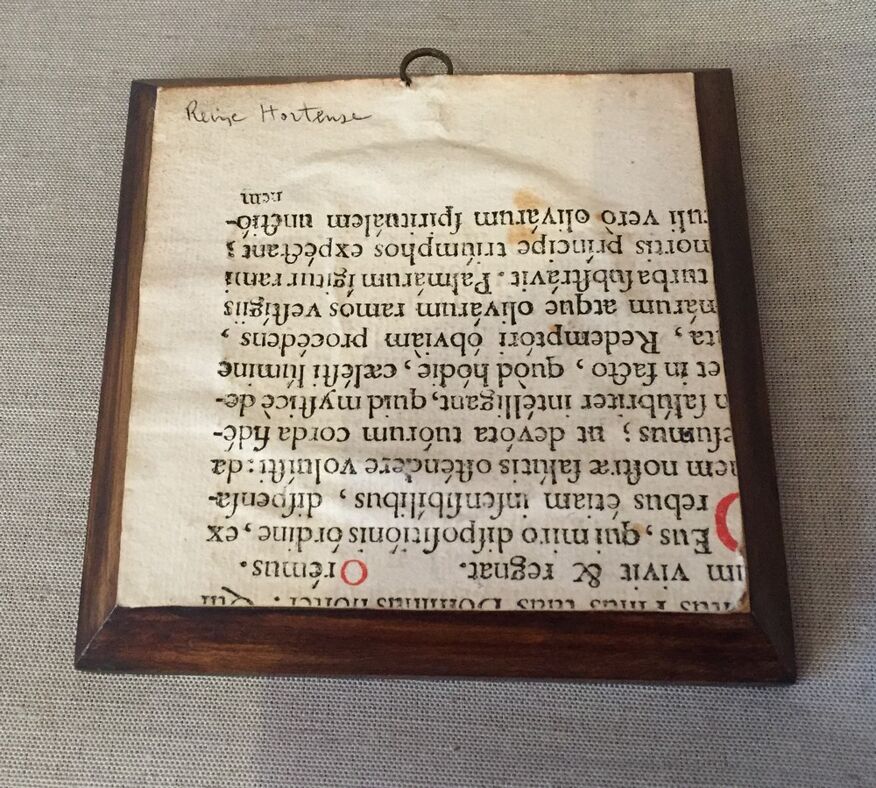 Reine Hortense
ſtus Fílius tuus Dóminus noſter: Qui
um vivit & regnat. Orémus.
DEus, qui miro diſpoſitiónis órdine, ex
rebus étiam inſenſibílibus, diſpenſa-
nem noſtræ ſalútis oſténdere voluíſti: da
eſumus; ut devóta tuórum corda fidé-
n ſalúbriter intélligant, quid myſticè de-
et in facto, quòd hódie, cæléſti lúmine
ta, Redemptóri óbviàm procédens,
márum atque olivárum ramos veſtígiis
turba ſubſtrávit. Palmárum ígitur rami
mortis príncipe triúmphos expéctant;
culi verò olivárum ſpirituálem unctió-
nem